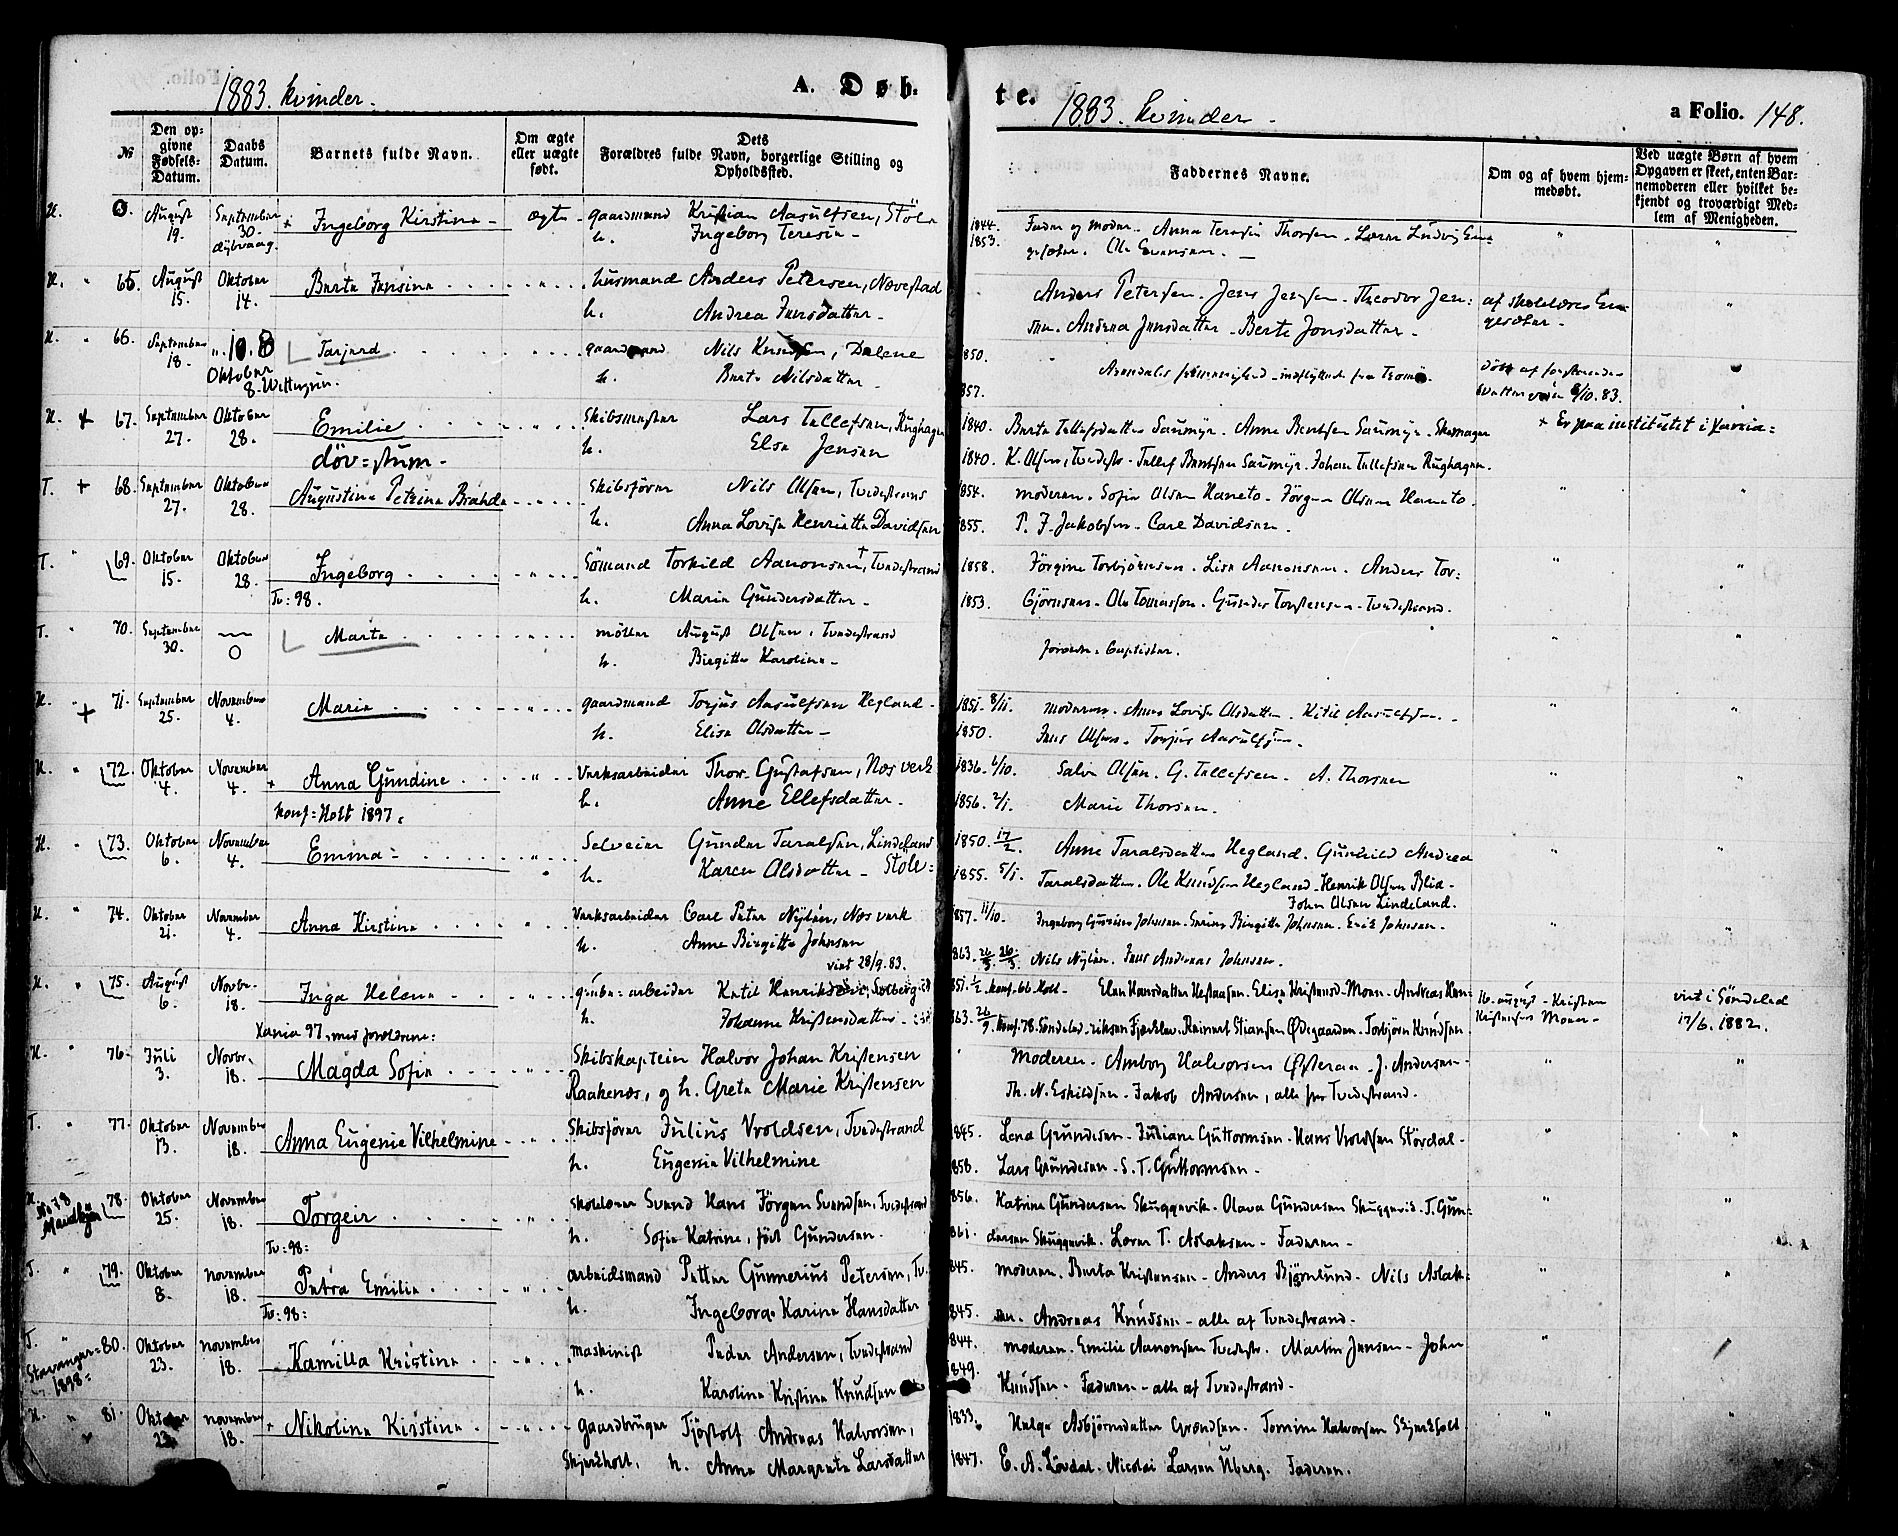 1883. kvinder.
A. Døb-
te.
1883. kvinder.
a Folio. 148.
№
Den op-
givne
Fødsels-
Datum.
Daabs
Datum.
Barnets fulde Navn.
Om ægte
eller uægte
født.
Dets
Forældres fulde Navn, borgerlige Stilling og
Opholdssted.
Faddernes Navne.
Om og af hvem hjem-
medøbt.
Ved uægte Børn af hvem
Opgaven er skeet, enten Bar-
nemoderen eller hvilket be-
kjendt og troværdigt Med-
lem af Menigheden.
H. August 19. September 30. + Ingeborg Kirstine - ægte gaardmand Kristian Aasulfsen, Støle
h. Ingeborg Teresia -
1844. Fader og moder - Anna Teresia Thorsen - Lærer Ludvig En-
1853. gesæter. Ole Evensen. -
H. " 65. August 15. Oktober 14. Berte Jensine " husmand Anders Petersen, Nævestad
h. Andrea Jensdatter -
Anders Petersen. Jens Jensen - Theodor Jen:
sen. Andrea Jensdatter - Berte Jonsdatter -
af skolelærer En-
gesæter -
H. " 66. September 18. Oktober 8. Tarjerd " gaardmand Nils Knudsen, Dalene
h. Berte Nilsdatter -
1850.
857.
H. + 67. September 27. Oktober 28. Emilie " Skibsmester Lars Tellefsen, Rughagen
døv=stum -
h. Else Jensen
1840. Berte Tellefsdatter Saumyr. Anne Berntsen Saumyr. Skomager
1840. K. Olsen, Tvedestr - Tellef Berntsen Saumyr. Johan Tellefsen Rughagen.
+ Er paa institutet i Xania=
T. + 68. September 27. Oktober 28. Augustine Petrine Brahde Skibsfører Nils Olsen, Tvedestrand
h. Anna Lovise Henriette Davidsen
1854. moderen. Sofie Olsen Haneto - Jørgen Olsen Haneto.
1855. P. J. Jakobsen - Carl Davidsen.
T. " 69. Oktober 15. Oktober 28. Ingeborg " Sømand Torkild Aanonsen, Tvedestrand
Tv: 98.
h. Marie Gundersdatter -
1858. Jørgine Torbjørnsen. Lise Aanonsen. Anders Tor:
1853. bjørnsen - Ole Tomassen. Gunder Torstensen - Tvedestrand.
T. " 70. September 30. Marte " møller August Olsen, Tvedestrand
h. Birgitte Karoline -
H. " 71. September 25. November 4. Marie " gaardmand Torjus Aasulfsen Hegland -
h. Elise Olsdatter -
1851. 8/11. moderen. Anne Lovise Olsdatter. Kitil Aasulfsen. -
1850. Jens Olsen. Torjus Aasulfsen.
H. " 72. Oktober 4. November 4. + Anna Gundine " Verksarbeider Thor Gustafsen, Nes verk
Konf= Holt 1897.
h. Anne Ellefsdatter.
1836. 6/10. Salve Olsen. G. Tellefsen. A. Thorsen
1856. 2/1. Marie Thorsen.
H. " 73. Oktober 6. November 4. Emma - " Selveier Gunder Taralsen, Lindeland
h. Karen Olsdatter - Støle:
1850. 17/2. Anne Taralsdatter Hegland. Gunhild Andrea
1855. 5/1. Taralsdatter. Ole Knudsen Hegland - Henrik Olsen Blid -
John Olsen Lindeland.
H. " 74. Oktober 21. November 4. Anna Kirstine " Verksarbeider Carl Peter Nylén, Nes verk
h. Anne Birgitte Johnsen
viet 28/9. 83.
1857. 11/10. Ingeborg Johnsen. Birgitte Johnsen. Erik Johnsen.
863. Nils Nylén. Jens Andreas Johnsen.
H. " 75. August 6. Novbr. 18. Inga Helene " grube=arbeider Ketil Henriksen, Solberg
Xania 97, med forældrene:
h. Johanne Kristensdatter
851. 1/2. konf. 66 Holt - Elen Hansdatter Hestaasen. Elise Kristensd. Moner - Andreas Hen-
863. 26/9. konf. 78. Søndeled - riksen Fjærklev. Reinert Stiansen Ødegaarden. Torbjørn Knudsen
16. august - Kristen
Kristensen Moner -
viet i Søndeled
17/6. 1882.
H. " 76. Juli 3. Novbr. 18. Magda Sofie " Skibskaptein Halvor Johan Kristensen
Raakenæs, og h. Grete Marie Kristensen
Moderen. Amborg Halvorsen Østeraa - J. Andersen -
Th. N. Eskildsen - Jakob Andersen, alle fra Tvedestrand.
T. " 77. Oktober 13. November 18. Anna Eugenie Vilhelmine " Skibsfører Julius Vroldsen, Tvedestrand
h. Eugenie Vilhelmine
1845. Lena Gundersen - Juliane Guttormsen - Hans Vroldsen Stordal -
858. Lars Gundersen - S. T. Guttormsen -
H. 78. Oktober 25. November 18. Torgeir " skolelærer Svend Hans Jørgen Svendsen, Tvedestrand
Tv: 98:
h. Sofie Katrine, født Gundersen -
856. Katrine Gundersen Skuggevik. Olava Gundersen Skuggevik. T. Gun:
861. dersen Skuggevik. Lærer T. Aslaksen - Faderen -
T. " 79. Oktober 8. November 18. Petra Emilie " arbeidsmand Petter Gunnerius Petersen, Tv.
Tv: 98:
h. Ingeborg Karine Hansdatter
845. moderen. Berta Kristensen - Anders Bjørnlund - Nils Aslak:
845. sen. Andreas Knudsen - alle af Tvedestrand.
T. Stavanger= 1898= 80. Oktober 23. november 18. Kamilla Kristine " maskinist Peder Andersen, Tvedestrand
h. Karoline Kristine Knudsen
1844. moderen. Emilie Aanonsen Tvedestr. Martin Jensen - John
1849. Knudsen - Faderen - alle af Tvedestrand -
H. " 81. Oktober november 18. + Nikoline Kirstine " gaardbruger Tjøstolf Andreas Halvorsen,
Skjerkholt, h. Anne Margrete Larsdatter
1833. Helge Asbjørnsdatter Grændsen. Tomine Halvorsen Skjerkholt
1847. E. A. Løvdal. Nicolai Larsen Uberg. Faderen.